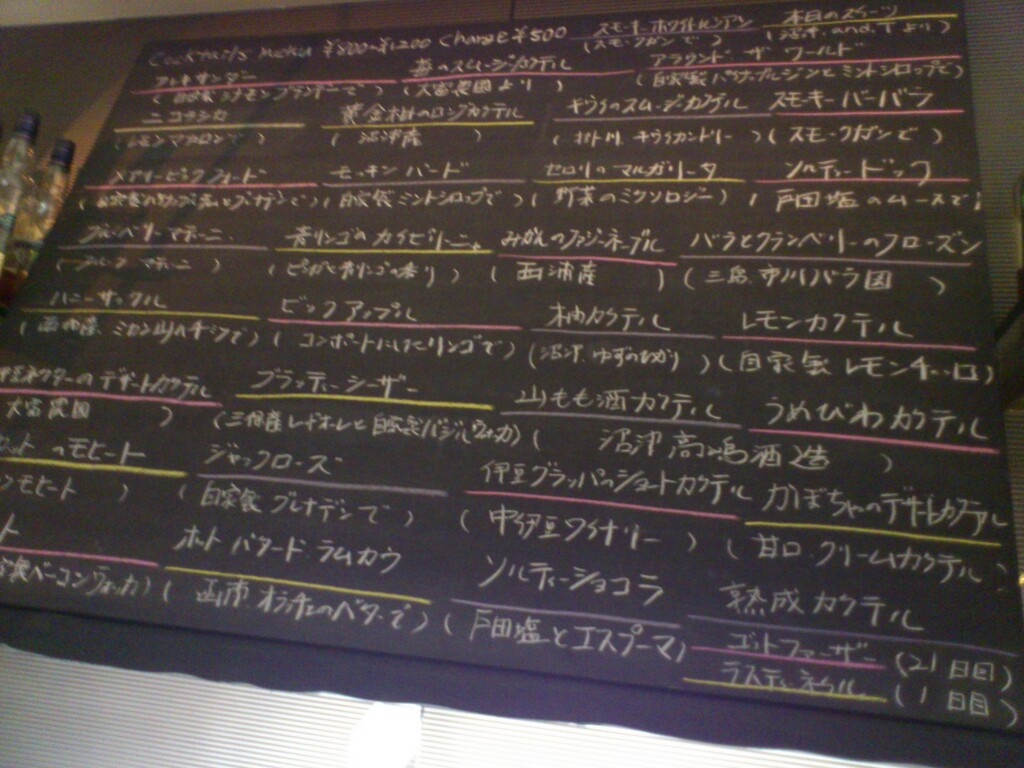 Cocktails menu ¥800~¥1200 Charge ¥500 スモーキーホワイトルシアン 本日のスイーツ
(スモークガンで) (沼津.and.Tより)
アレキサンダー 苺のスムージーカクテル アラウンド ザ ワールド
(自家製シナモンブランデーで) (大富農園より) (自家製パイナップルジンとミントシロップで)
ニコラシカ 黄金柑のロングカクテル キウイのスムージーカクテル スモーキーバーバラ
(レモンマカロンで) (沼津産) (キウイカントリー) (スモークガンで)
メアリーピックフォード モッキンバード セロリのマルガリータ ソルティードッグ
(自家製 とグレナデンで) (自家製ミントシロップで) (野菜のミクソロジー) (戸田塩のムースで)
ブルーベリーマティーニ 青リンゴのカイピリーニャ みかんのファジーネーブル バラとクランベリーのフローズン
(フルーツマティーニ) (ピンガと青リンゴの香り) (西浦産) (三島.市川バラ園)
ハニーサックル ビックアップル 柚カクテル レモンカクテル
(西浦産.ミカン山のハチミツで) (コンポートにしたリンゴで) (沼津.ゆずのかおり) (自家製レモンチェッロ)
ネクターのデザートカクテル ブラッディーシーザー 山もも酒カクテル うめびわカクテル
大富農園) (と自家製バジルウォッカ) (沼津高嶋酒造)
のモヒート ジャックローズ 伊豆グラッパのショートカクテル かぼちゃのデザートカクテル
モヒート) (自家製グレナデンで) (中伊豆ワイナリー) (甘口.クリームカクテル)
ト ホットバタードラムカウ ソルティーショコラ 熟成カクテル
家製ベーコンウォッカ) (函南.オラッチェのバターで) (戸田塩とエスプーマ) ゴットファーザー (21日目)
ラスティネイル (1日目)